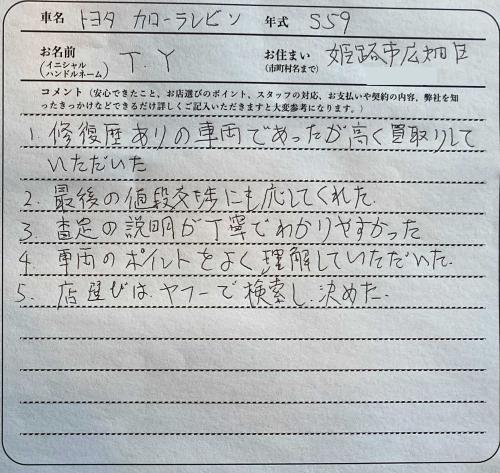 車名 トヨタ カローラレビン 年式 S59
お名前 T.Y お住まい 姫路市広畑区
(イニシャル ハンドルネーム) (市町村名まで)
コメント(安心できたこと、お店選びのポイント、スタッフの対応、お支払いや契約の内容、弊社を知
ったきっかけなどできるだけ詳しくご記入いただきますと大変参考になります。)
1. 修復歴ありの車両であったが高く買取りして
いただいた
2. 最後の値段交渉にも応してくれた.
3. 査定の説明が丁寧でわかりやすかった
4. 車両のポイントをよく理解していただいた.
5. 店選びは、ヤフーで検索し、決めた.